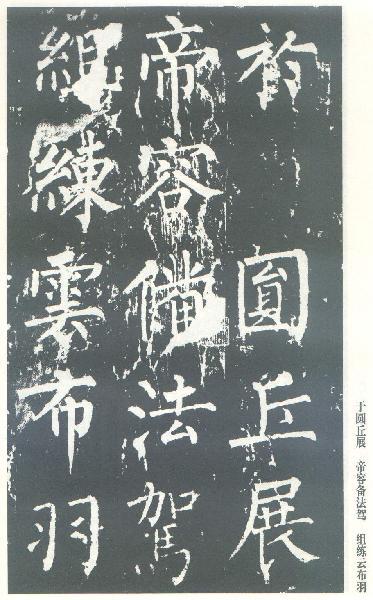 於圓丘展
帝容備法駕
組練雲布羽
于圆丘展 帝容备法驾 组练云布羽